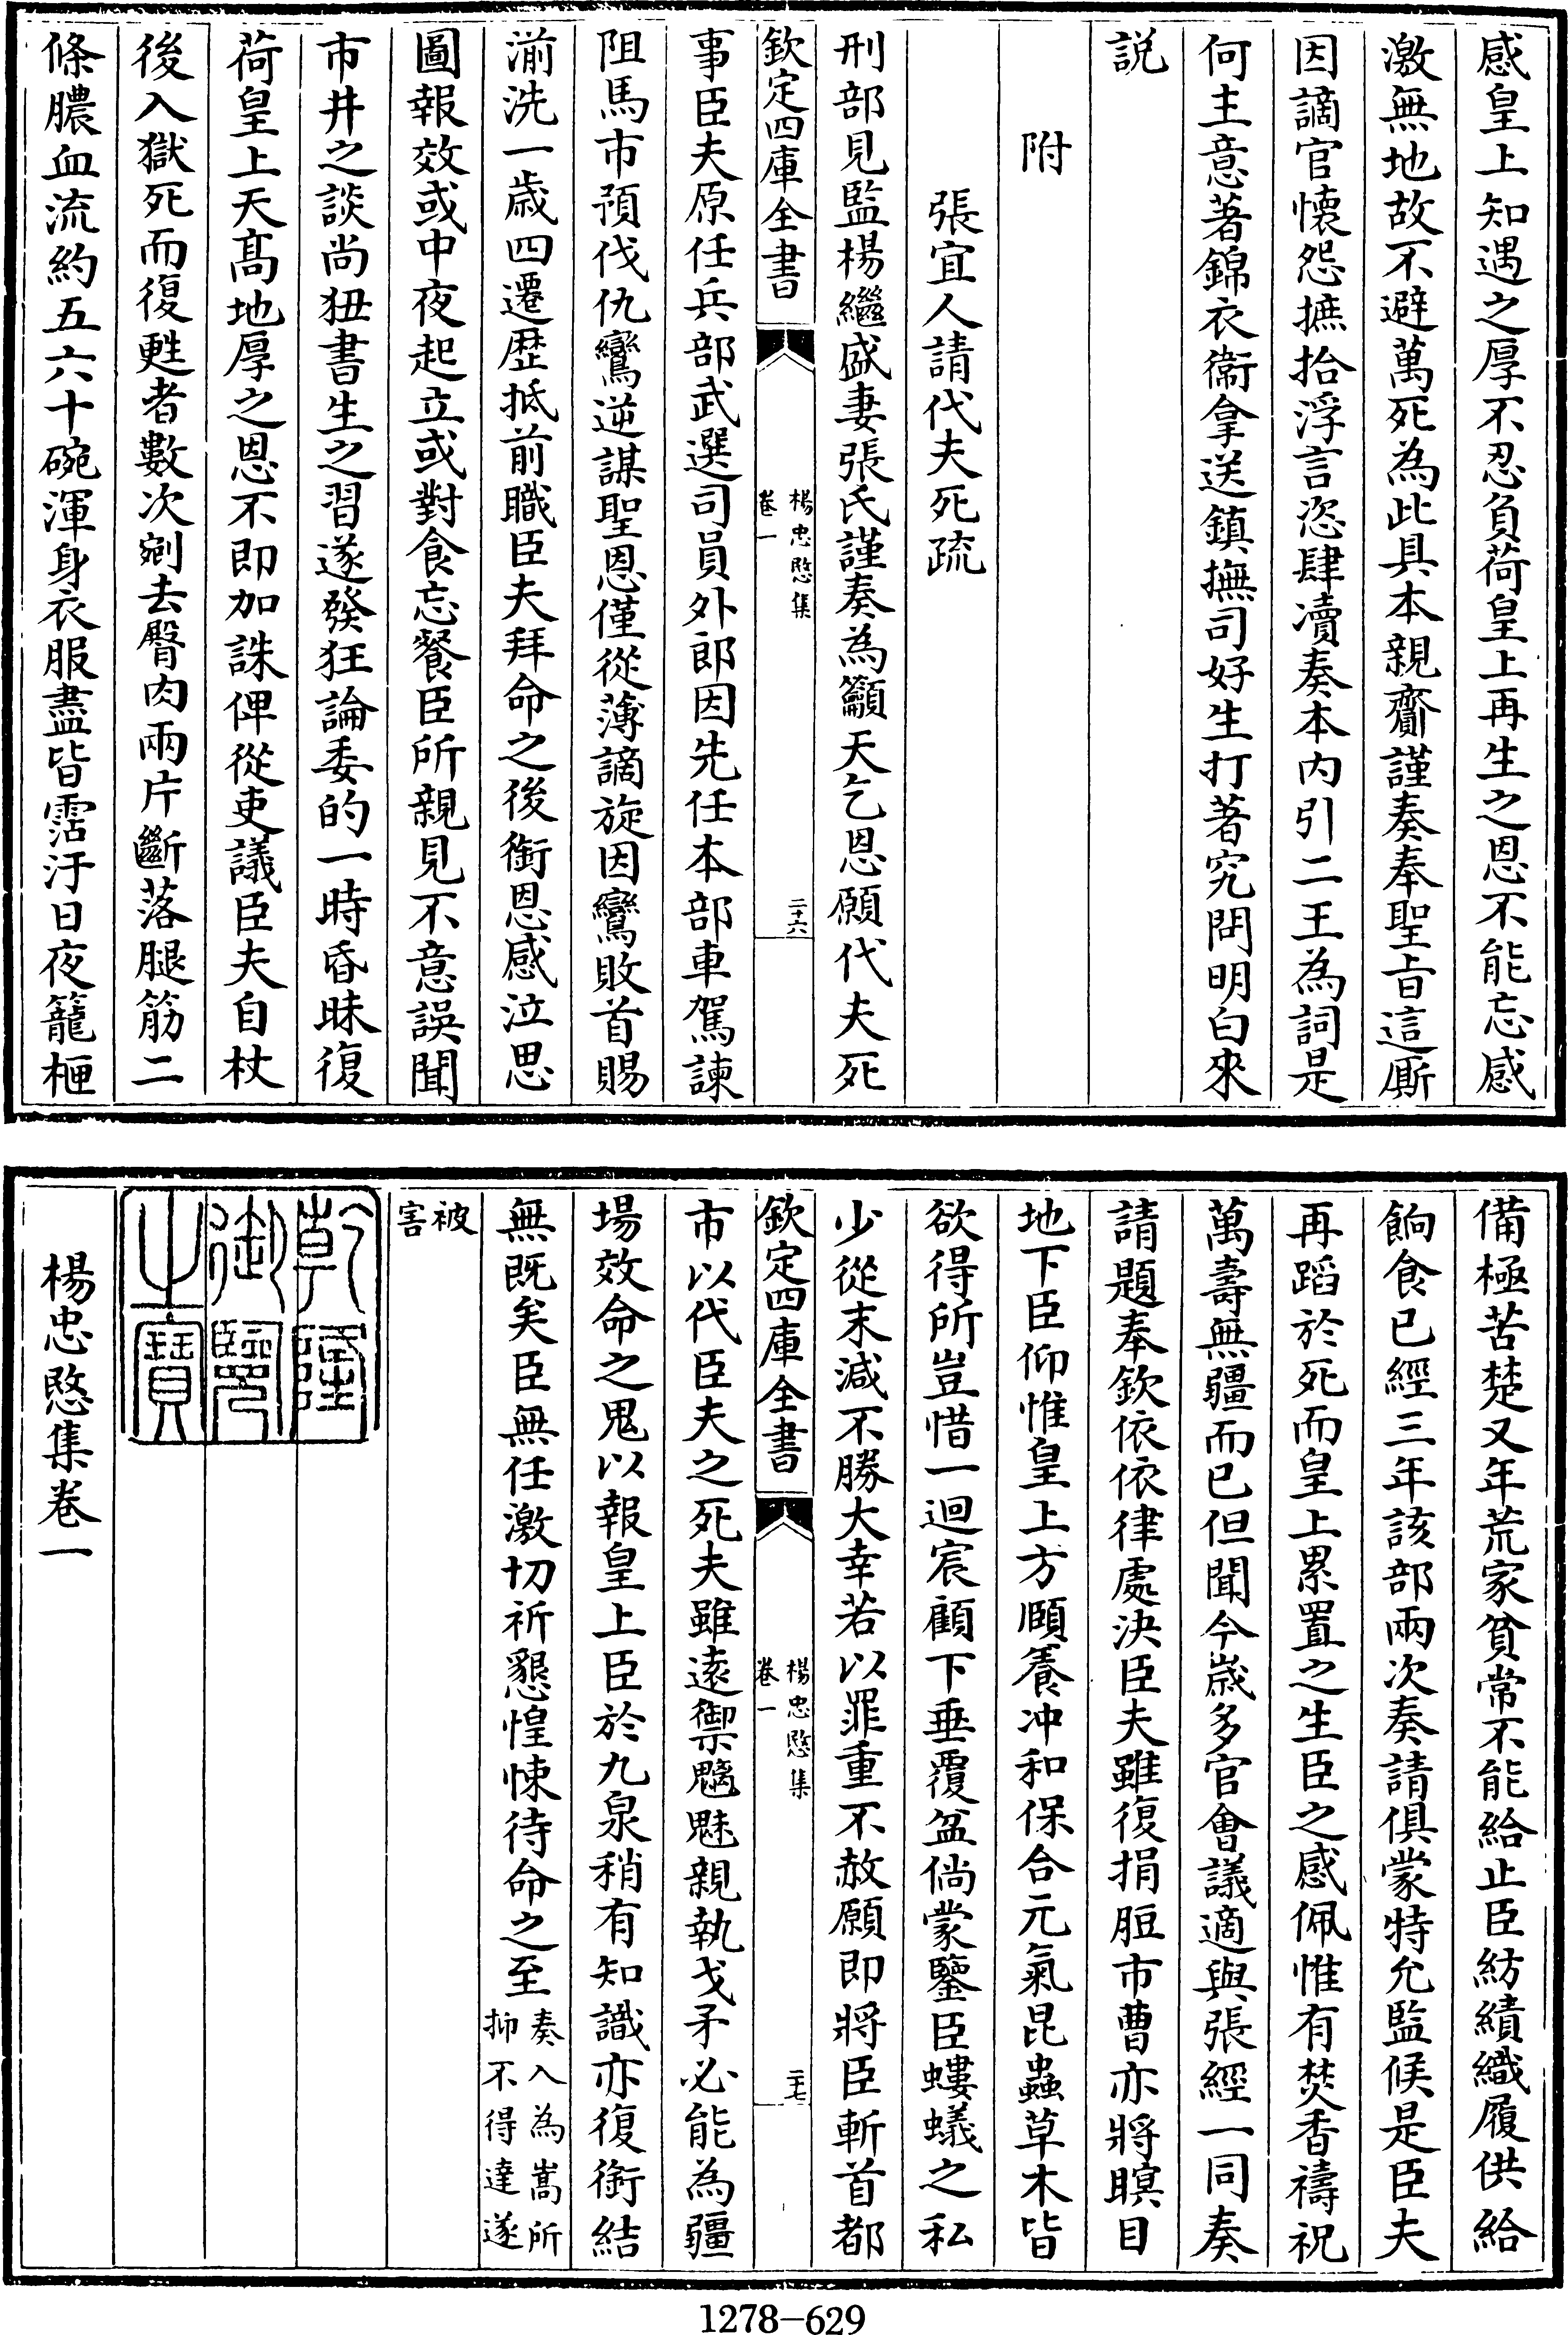 感皇上知遇之厚不忍負荷皇上再生之恩不能忘感
激無地故不避萬死為此具本親齎謹奏奉聖旨這厮
因謫官懷怨摭拾浮言恣肆瀆奏本內引二王為詞是
何主意著錦衣衞拿送鎮撫司好生打著究問明白來
説
附
張宜人請代夫死疏
刑部見監楊繼盛妻張氏謹奏為籲天乞恩願代夫死
欽定四庫全書
楊忠愍集
卷一
二十六
事臣夫原任兵部武選司員外郎因先任本部車駕諫
阻馬市預伐仇鸞逆謀聖恩僅從薄謫旋因鸞敗首賜
湔洗一歲四遷歴抵前職臣夫拜命之後銜恩感泣思
圖報效或中夜起立或對食忘餐臣所親見不意誤聞
市井之談尚狃書生之習遂發狂論委的一時昏昧復
荷皇上天髙地厚之恩不即加誅俾從吏議臣夫自杖
後入獄死而復甦者數次剜去臀肉兩片斷落腿筋二
條膿血流約五六十碗渾身衣服盡皆霑汙日夜籠柙
備極苦楚又年荒家貧常不能給止臣紡績織履供給
餉食已經三年該部兩次奏請俱蒙特允監候是臣夫
再蹈於死而皇上累置之生臣之感佩惟有焚香禱祝
萬壽無疆而已但聞今歲多官會議適與張經一同奏
請題奉欽依依律處決臣夫雖復捐脰市曹亦將瞑目
地下臣仰惟皇上方頤養冲和保合元氣昆蟲草木皆
欲得所豈惜一迴宸顧下垂覆盆倘蒙鑒臣螻蟻之私
少從末減不勝大幸若以罪重不赦願即將臣斬首都
欽定四庫全書
楊忠愍集
卷一
二十七
市以代臣夫之死夫雖遠禦魑魅親執戈矛必能為疆
場效命之鬼以報皇上臣於九泉稍有知識亦復銜結
無既矣臣無任激切祈懇惶悚待命之至奏入為嵩所
抑不得達遂
被
害
乾隆
御覽
之寶
楊忠愍集卷一
1278-629